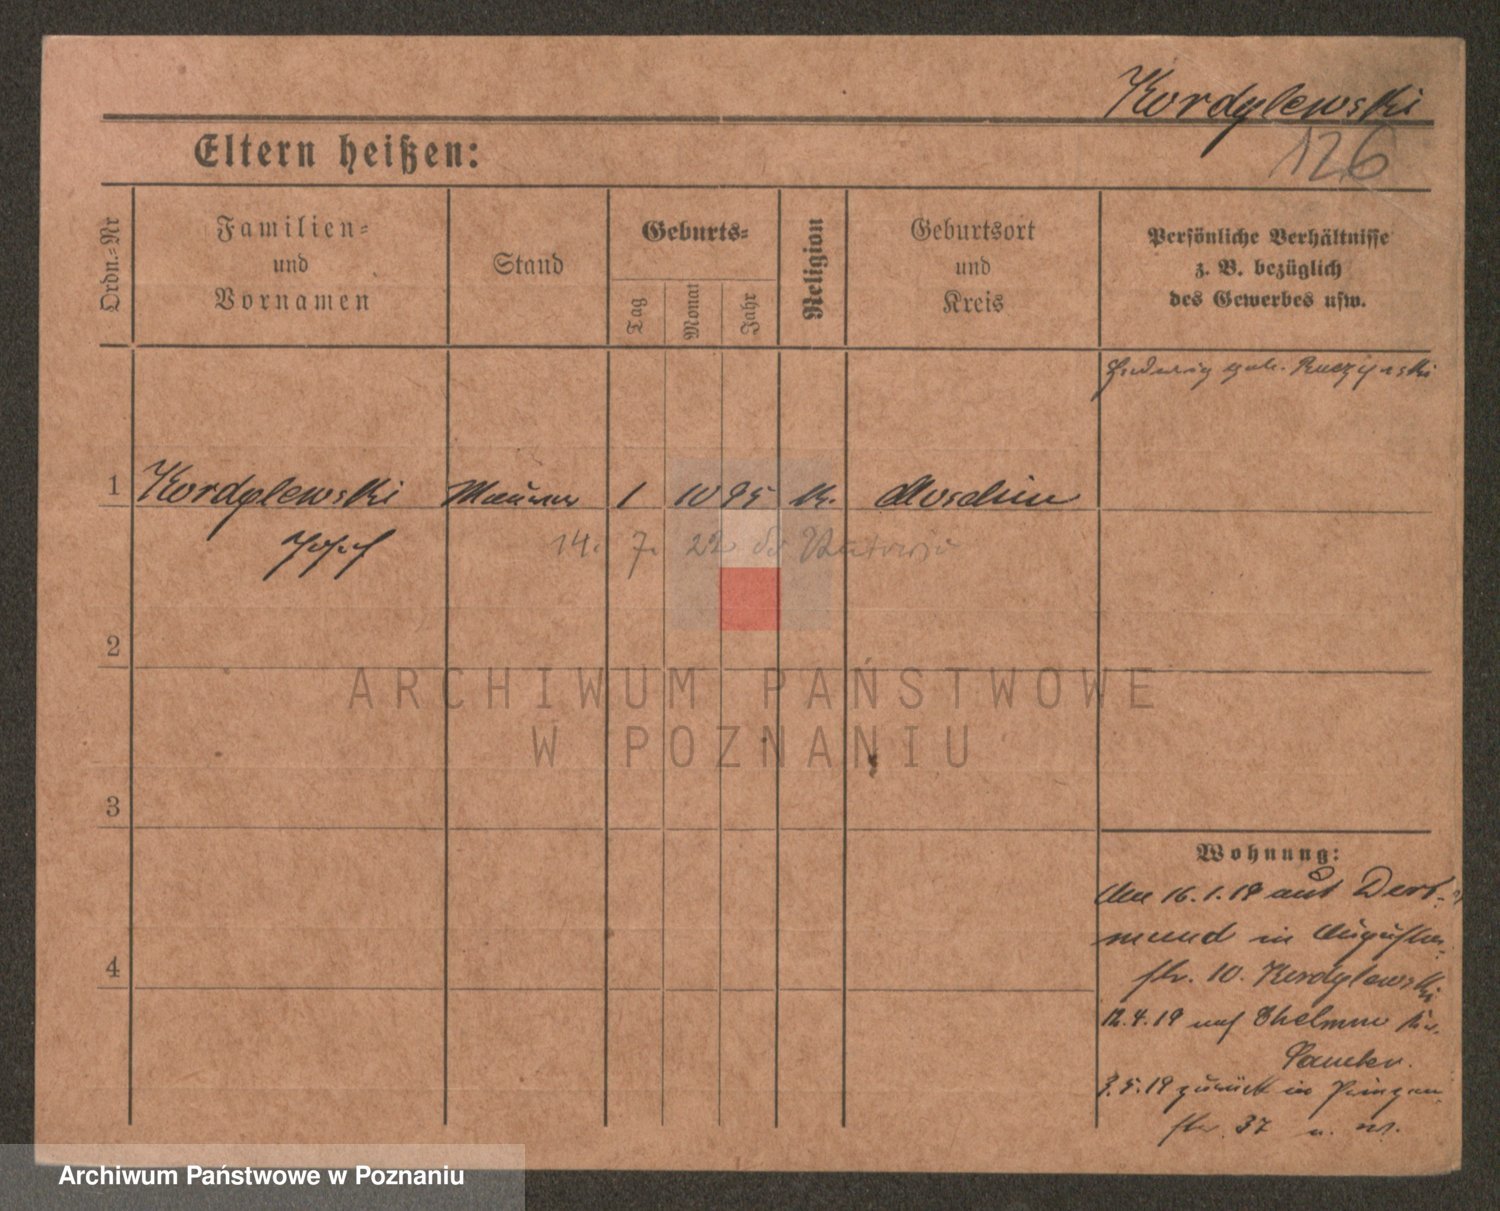 Kordylewski
126
Eltern heißen:
Ordn.-Nr
Familien-
und
Vornamen
Stand
Geburts-
Tag
Monat
Jahr
Religion
Geburtsort
und
Kreis
Persönliche Verhältnisse
z. B. bezüglich
des Gewerbes usw.
Hedwig geb. Ruczynski
1 Kordylewski Maurer 1 10 95 k. Moschin
Josef
14. 7. 22
2
3
4
Wohnung:
16.1.19 aus Dort-
mund in Augusta
str. 10. Kordylewski
12.4.19 auf
Samter.
3.5.19 zurück in
str. 37
ARCHIWUM PAŃSTWOWE
W POZNANIU
Archiwum Państwowe w Poznaniu